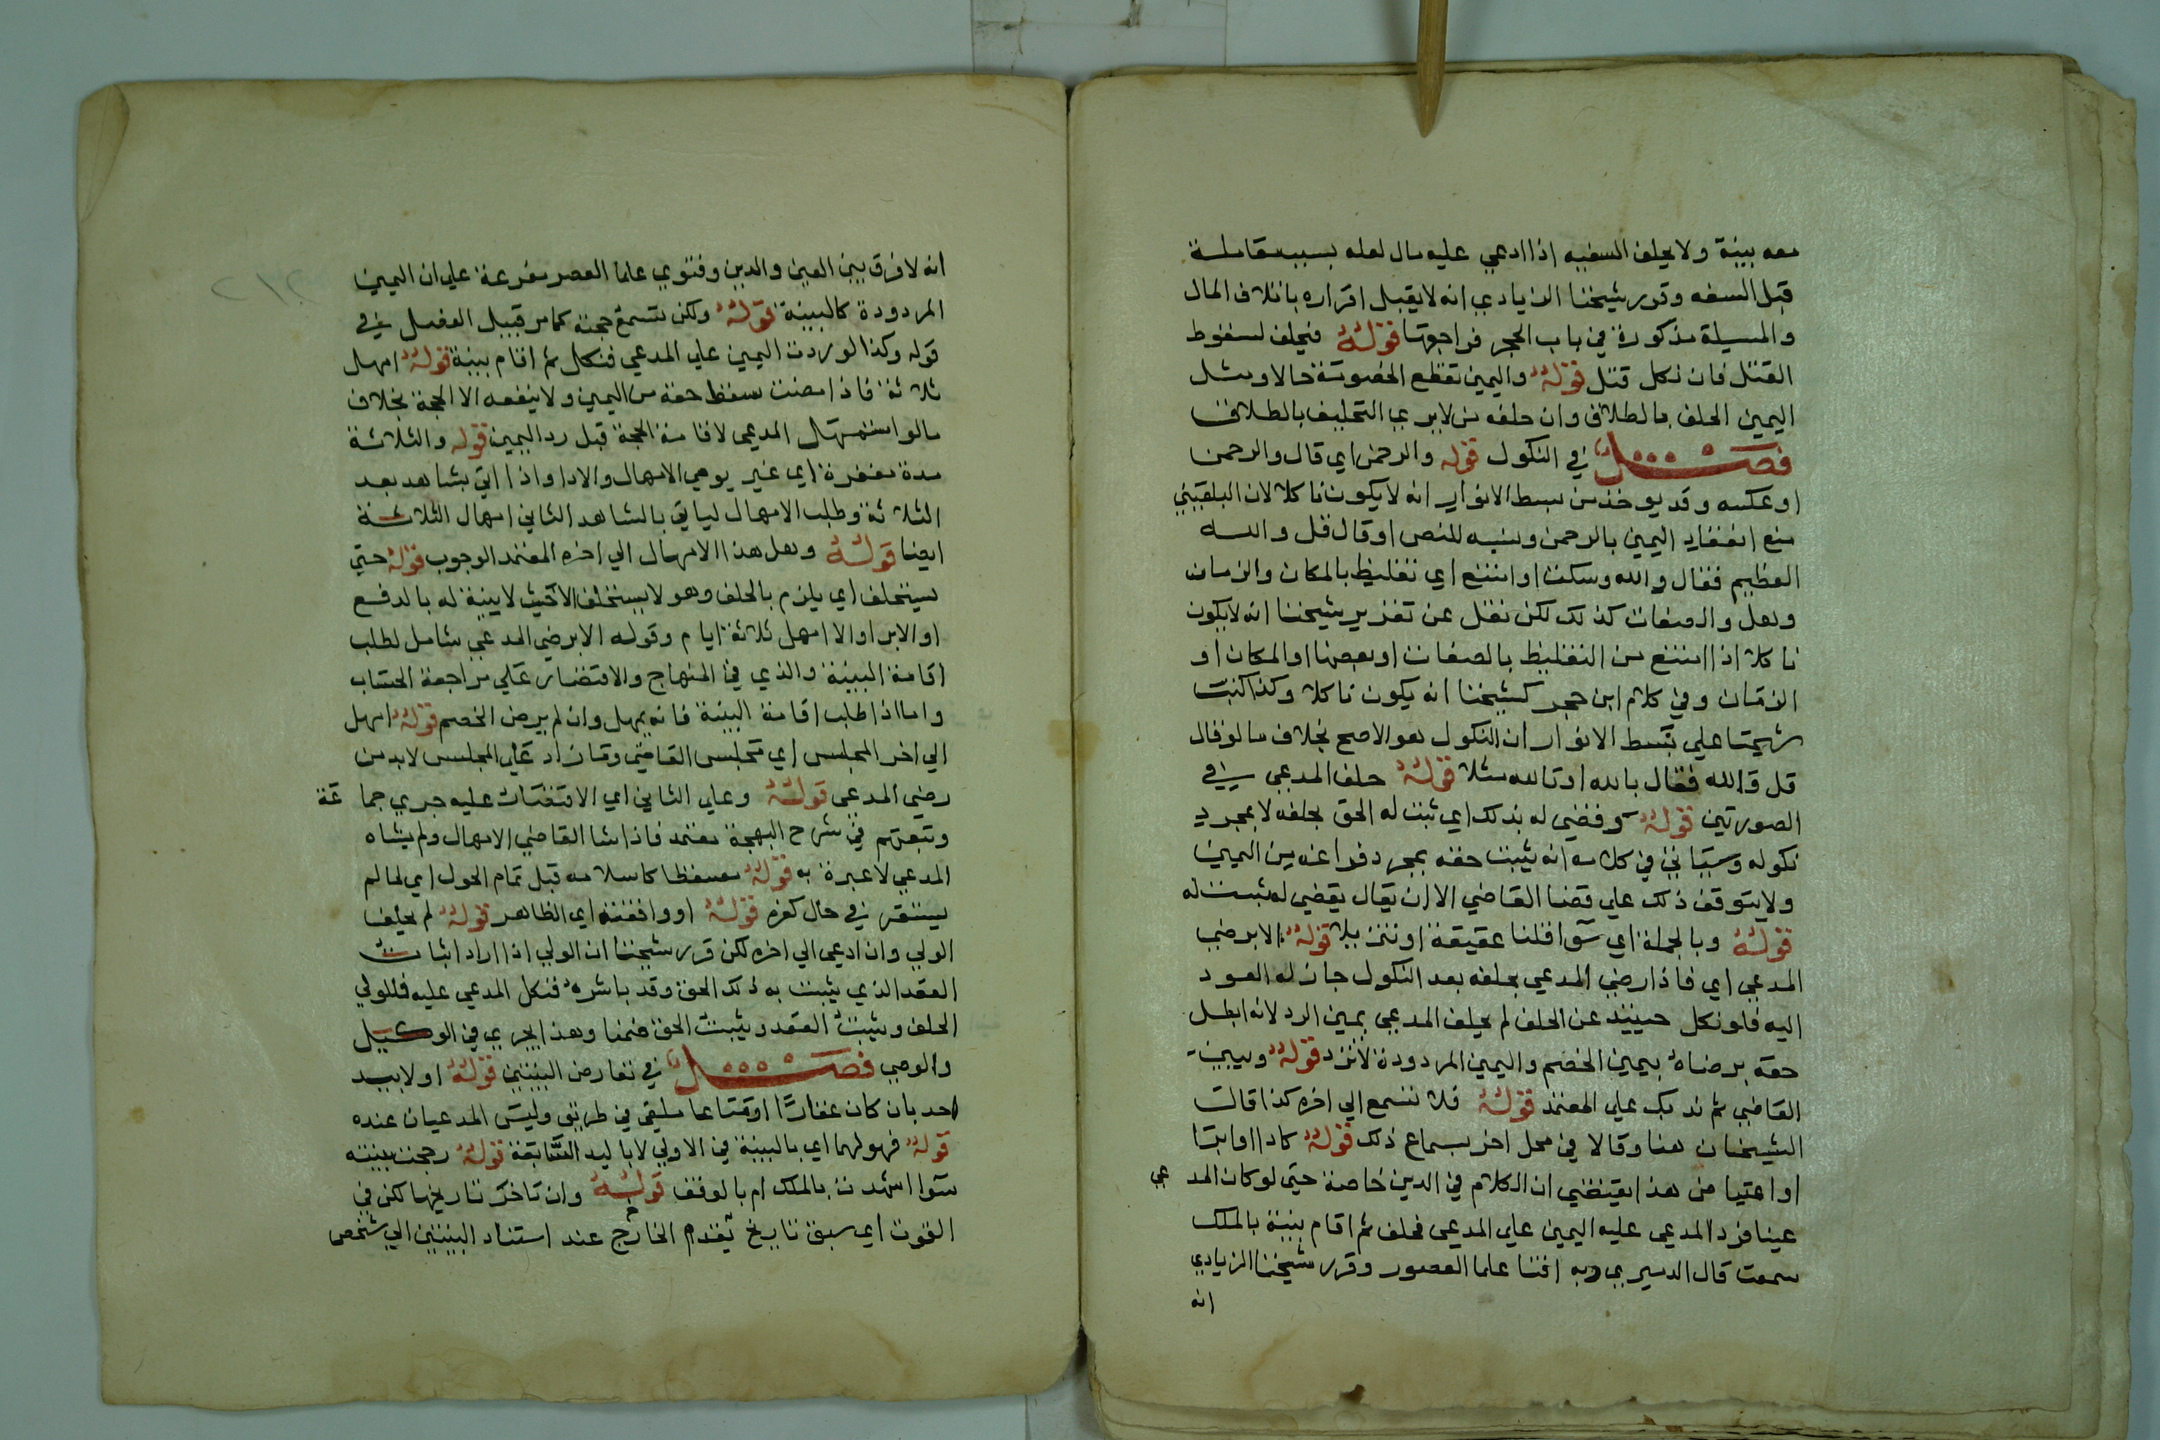 معه بينة ولا يحلف السفيه اذا ادعي عليه مال لعله بسبب معاملة
قبل السفه وقرر شيخنا الزيادي انه لا يقبل اقراره باتلاف المال
والمسيلة مذكورة في باب الحجر فراجعها قوله فيحلف لسقوط
القتل فان نكل قتل قوله واليمين تقطع الخصومة حالا ومثل
اليمين الحلف بالطلاق وان حلفه من لا يري التحليف بالطلاق
فصل في النكول قوله والرحمن اي قال والرحمن
او عكسه وقد يوخذ من بسط الانوار انه لا يكون ناكلا لان البلقيني
منع انعقاد اليمين بالرحمن ونسبه للنص او قال قل والله
العظيم فقال والله وسكت او امتنع اي تغليظ بالمكان والزمان
وهل والصفات كذلك لكن نقل عن تقرير شيخنا انه لا يكون
ناكلا اذا امتنع من التغليظ بالصفات او بعضها او المكان او
الزمان وفي كلام ابن حجر كشيخنا انه يكون ناكلا وكذا كتبت
علي بسط الانوار ان النكول هو الاصح بخلاف ما لو قال
قل والله فقال بالله او تالله مثلا قوله حلف المدعي في
الصورتين قوله وقضي له بذلك اي ثبت له الحق بحلفه لا بمجرد
نكوله وسياتي في كلامه انه يثبت حقه بمجرد فراغه من اليمين
ولا يتوقف ذلك علي قضا القاضي الا ان يقال يقضي له مثبت له
قوله وبالجملة اي سوا قلنا عقيقة او تنزيلا قوله الا برضي
المدعي اي فاذا رضي المدعي بحلفه بعد النكول جاز له العود
اليه فلو نكل حينيذ عن الحلف لم يحلف المدعي يمين الرد لانه ابطل
حقه برضاه بيمين الخصم واليمين المردودة لا ترد قوله ويبين
القاضي ثم ندبك علي المعتمد قوله فلا تسمع الي اخره كذا قالت
الشيخان هنا وقالا في محل اخر بسماع ذلك قوله كاداا وابرا
او اعتيا من هذا يقتضي ان الكلام في الدين خاصة حتي لو كان المدعي
عينا فرد المدعي عليه اليمين علي المدعي فحلف ثم اقام بينة بالملك
سمعت قال الدميري وبه افتا علما العصور وقرر شيخنا الزيادي
انه
٢١٢
انه لا فرق بين العين والدين وفتوي علما العصر مفرعة علي ان اليمين
المردودة كالبينة قوله ولكن تسمع حجته كما مر قبيل الفصل في
قوله وكذا لو ردت اليمين علي المدعي فنكل ثم اقام بينة قوله امهل
ثلاثة فاذا مضت سقط حقه من اليمين ولا ينفعه الا الحجة بخلاف
ما لو استمهل المدعي لاقامة الحجة قبل رد اليمين قوله والثلاثة
مدة مغفرة اي غير يومي الامهال والادا واذا اتي بشاهد بعد
الثلاثة وطلب الامهال لياتي بالشاهد الثاني امهال الثلاثة
ايضا قوله وهل هذا الامهال الي اخره المعتمد الوجوب قوله حتي
يستحلف اي يلزم بالحلف وهو لا يستحلف الا حيث لا بينة له بالدفع
او الابرا والا امهل ثلاثة ايام وقوله الا برضي المدعي شامل لطلب
اقامة البينة والذي في المنهاج والاقتضار علي مراجعة الحساب
واما اذا طلب اقامة البينة فانه يمهل وان لم يرض الخصم قوله امهل
الي اخر المجلس اي مجلس القاضي وما زاد علي المجلس لا بد من
رضي المدعي قوله وعلي الثاني اي الافتيات عليه جري جماعة
وتبعتهم في شرح البهجة معتمد فاذا شا القاضي الامهال ولم يشاه
المدعي لا عبرة به قوله مسقطا كاسلامه قبل تمام الحول اي لما لم
يستقر في حال كفره قوله او وافقته اي الظاهر قوله لم يحلف
الولي وان ادعي الي اخره لكن قرر شيخنا ان الولي اذا اراد اثبات
العقد الذي يثبت به ذلك الحق وقد باشره فنكل المدعي عليه فللولي
الحلف ويثبت العقد ويثبت الحق ضمنا وهذا يجري في الوكيل
والوصي فصل في تعارض البينتين قوله او لا بيد
احد بان كان عقارا او متاعا ملقي في طريق وليس المدعيان عنده
قوله فهو لهما اي بالبينة في الاولي لا باليد السابقة قوله رجحت بينته
سوا اشهدت بالملك ام بالوقف قوله وان تاخر تاريخها لكن في
القوت اي سبق تاريخ تقدم الخارج عند استناد البينتين الي شخص